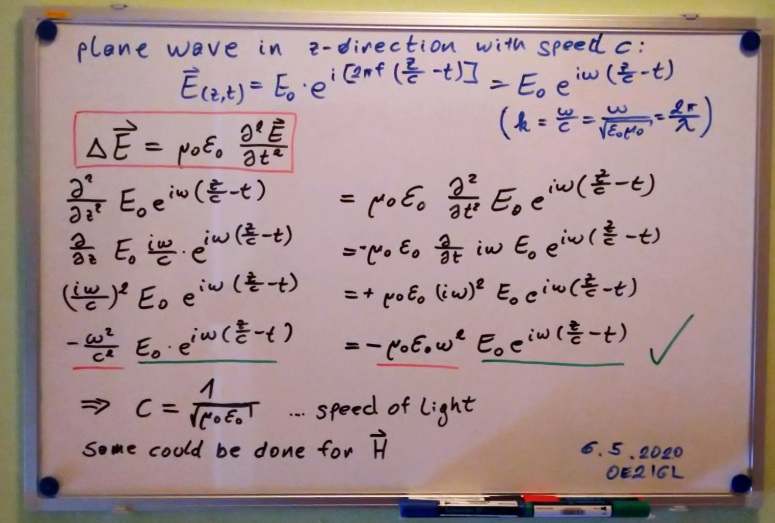 plane wave in z-direction with speed c:
E⃗(z,t) = E₀·e^{i[2πf(z/c −t)]} = E₀ e^{iω(z/c −t)}
(k = ω/c = ω/√ε₀μ₀ = 2π/λ)
ΔE⃗ = μ₀ε₀ ∂²E⃗/∂t²
∂²/∂z² E₀ e^{iω(z/c −t)} = μ₀ε₀ ∂²/∂t² E₀ e^{iω(z/c −t)}
∂/∂z E₀ iω/c · e^{iω(z/c −t)} = -μ₀ε₀ ∂/∂t iω E₀ e^{iω(z/c −t)}
(iω/c)² E₀ e^{iω(z/c −t)} = + μ₀ε₀ (iω)² E₀ e^{iω(z/c −t)}
-ω²/c² E₀ · e^{iω(z/c −t)} = - μ₀ε₀ω² E₀ e^{iω(z/c −t)} ✓
⇒ C = 1/√μ₀ε₀ ... speed of light
Same could be done for H⃗
6.5.2020
OE2IGL